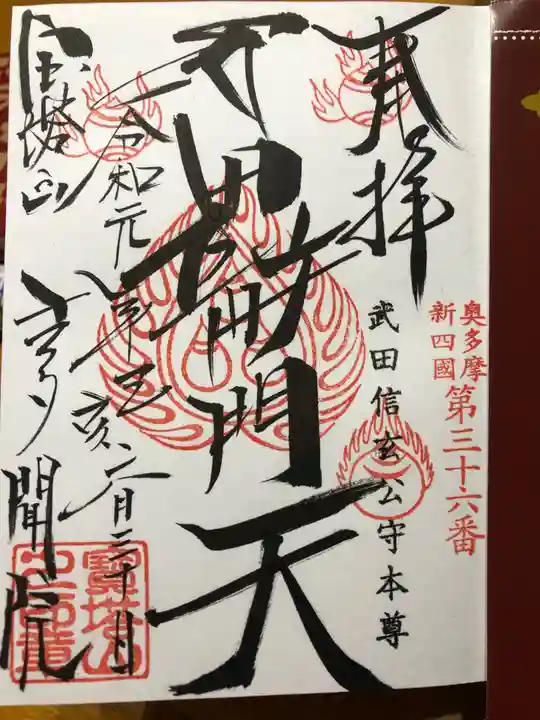 奥多摩
新四國
第三十六番
奉拝
武田信玄公守本尊
毘沙門天
令和元年己亥六月三十日
宝塔山
多聞院
寶塔山
之印章